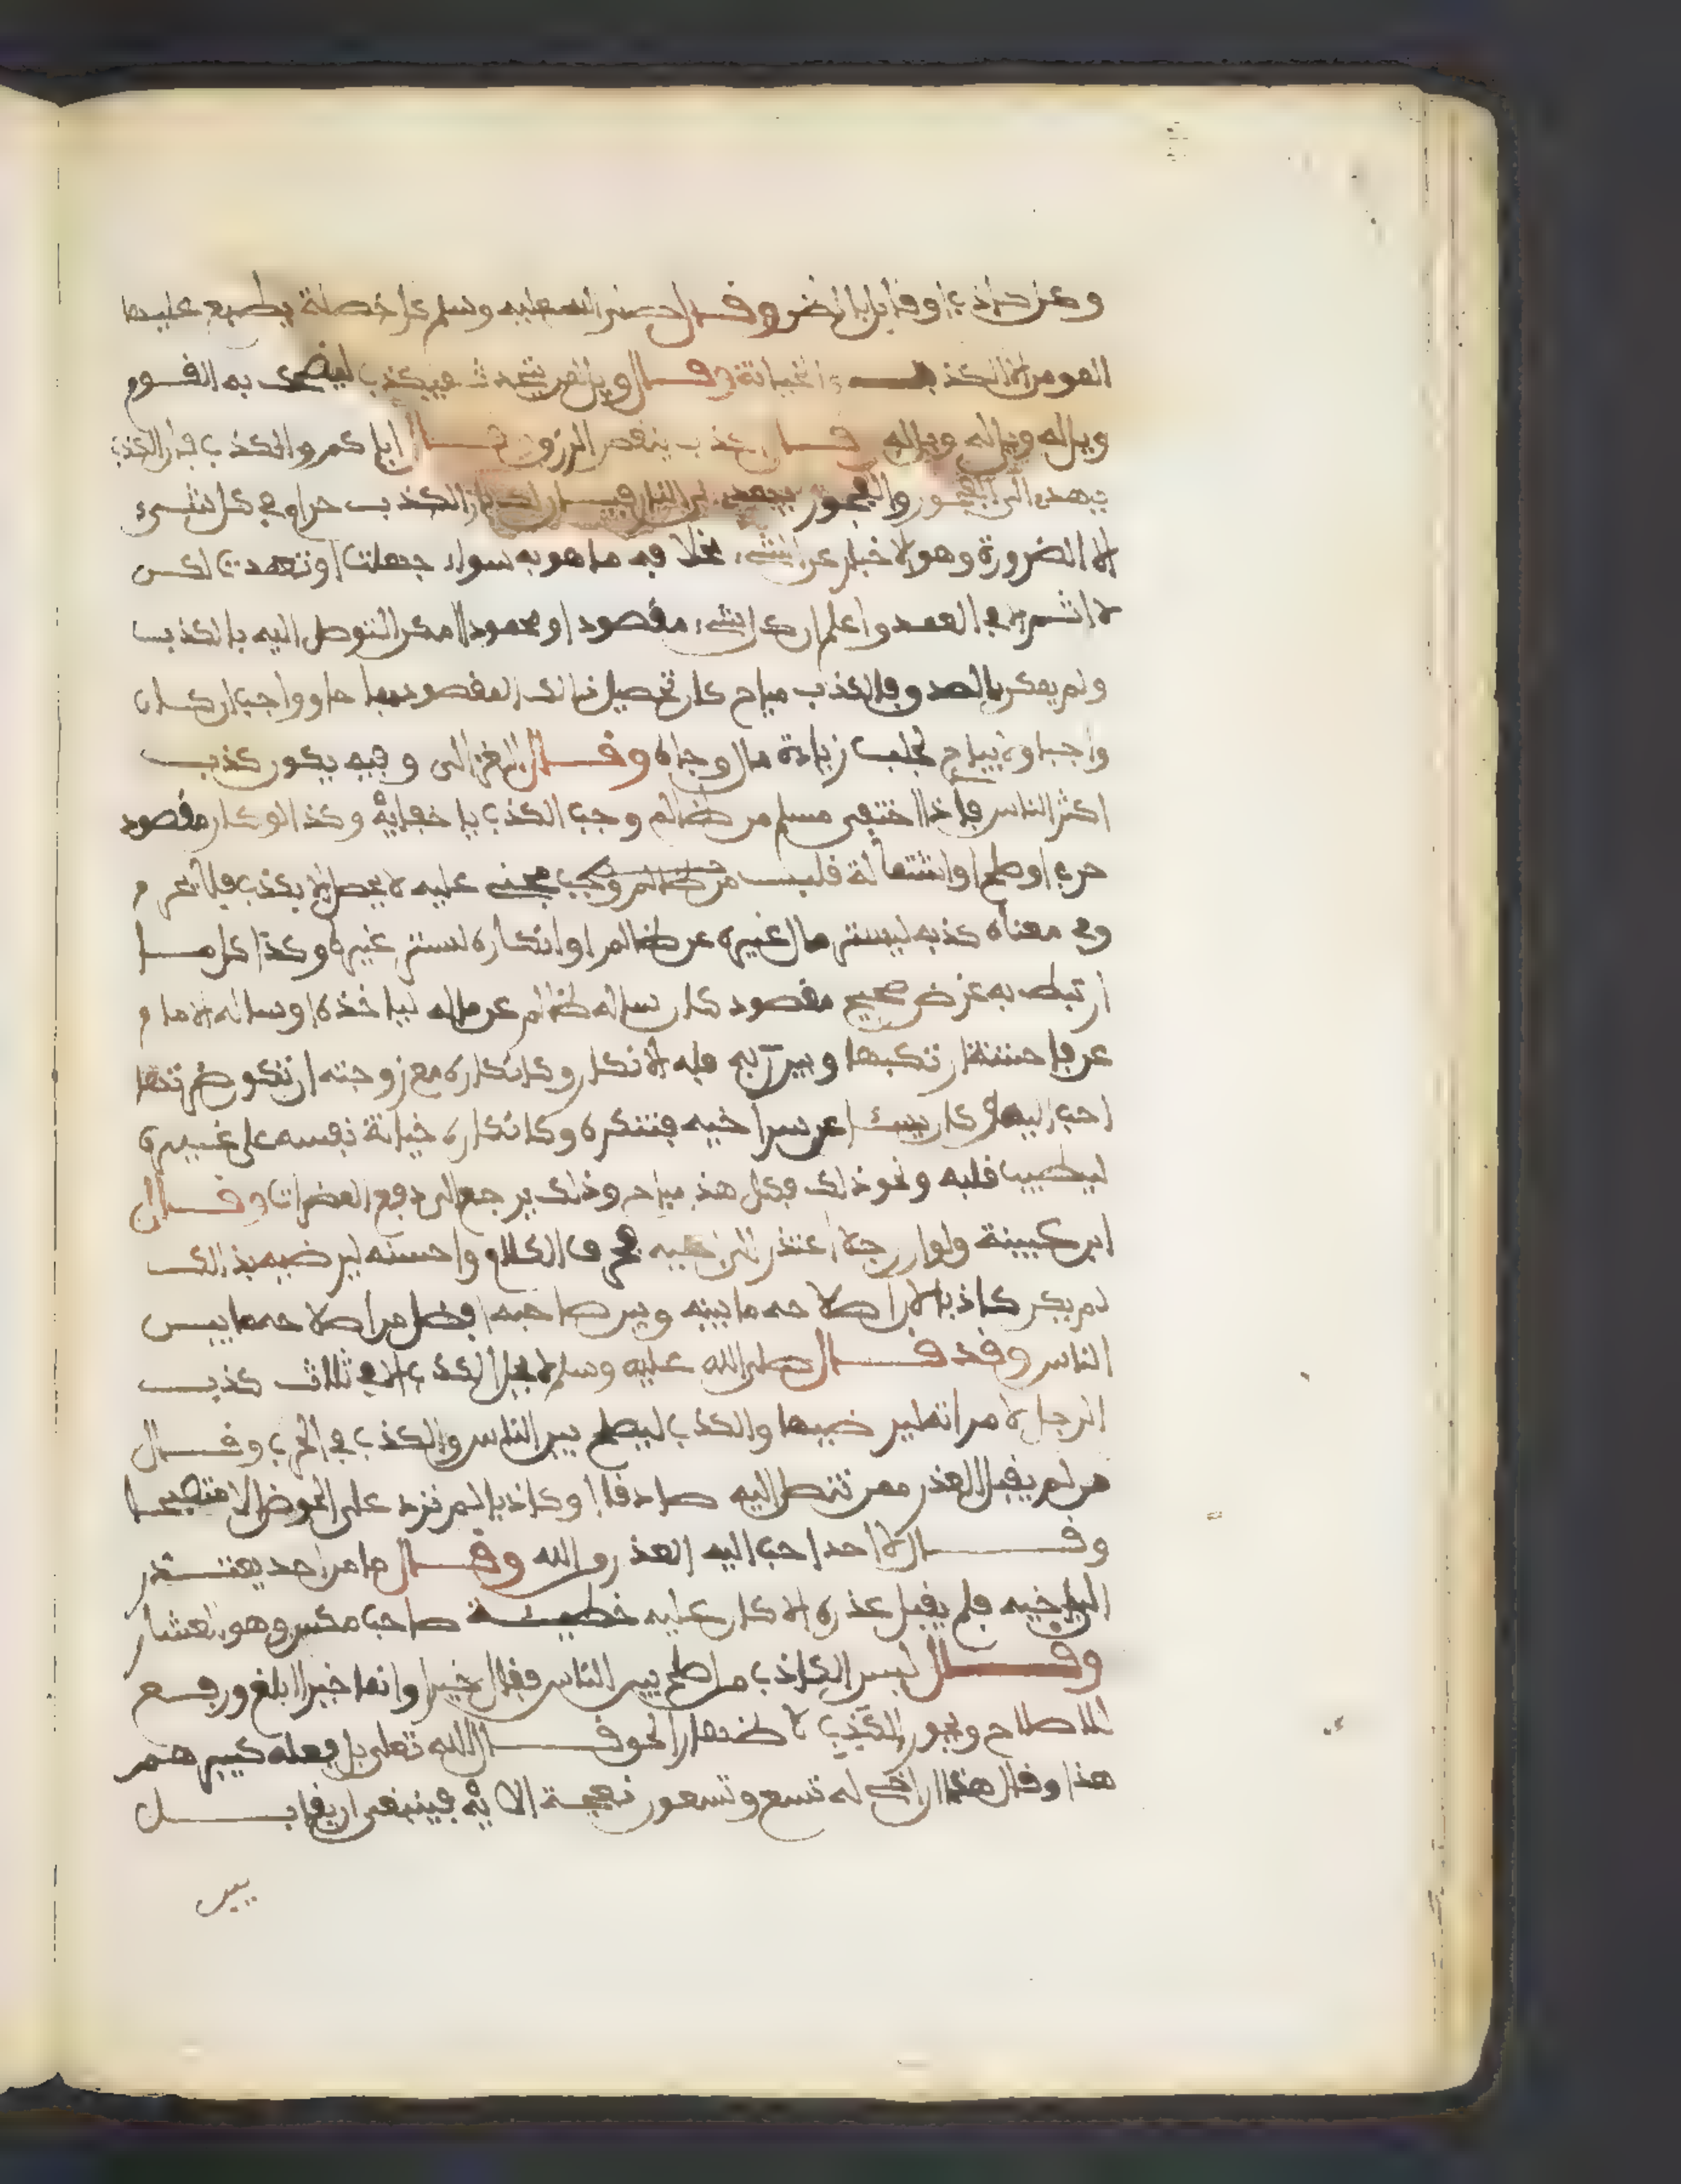 وقال صلى الله عليه وسلم كل خصلة يطبع عليها
المومن الا الكذب والخيانة وقال ويل للذي يحدث فيكذب ليضحك به القوم
ويل له ويل له ويل له وقال الكذب ينقص الرزق وقال اياكم والكذب فان الكذب
يهدي الى الفجور والفجور يهدي الى النار الكذب حرام في كل شيء
الا لضرورة وهو الاخبار عن الشيء بخلاف ما هو به سواء جهلت او تعمدت لكن
لا اثم الا في العمد واعلم ان كل شيء مقصود او محمود امكن التوصل اليه بالكذب
ولم يمكن بالصدق فالكذب مباح كان تحصيل ذالك المقصود مباحا وواجب ان كان
واجبا ولا يباح لجلب زيادة مال وجاه وقال الغزالى وفيه يكون كذب
اكثر الناس فاذا اختفى مسلم من ظالم وجب الكذب باخفايه وكذا لو كان مقصود
حرب او صلح او استمالة قلب مجني عليه لا يحصل الا بكذب فلا يحرم
وفي معناه كذبه ليستر مال غيره عن ظالم او انكاره لستر غيره وكذا كل ما
ارتبط به غرض صحيح مقصود كان ساله ظالم عن ماله لياخذه او ساله الامام
عن فاحشة ارتكبها وبين ربه فله الانكار وكانكاره مع زوجته ان تكون ضرتها
احب اليه او كان يسئل عن سر اخيه فينكره وكانكاره خيانة نفسه على غيره
ليطيب قلبه ونحو ذلك فكل هذ مباح وذلك يرجع الى دفع المضرات وقال
ابن عيينة ولو ان رجلا اعتذر الى اخيه فحرف الكلام واحسنه ليرضيه بذالك
لم يكن كاذبا لان اصلاحه ما بينه وبين صاحبه افضل من اصلاحه ما بين
الناس وقد قال صلى الله عليه وسلم لا يحل الكذب الا في ثلاث كذب
الرجل لامراته ليرضيها والكذب ليصلح بين الناس والكذب في الحرب وقال
من لم يقبل العذر ممن تنصل اليه صادقا او كاذبا لم يرد على الحوض الا متضيحا
وقال لا احد احب اليه العذر من الله وقال ما من احد يعتذر
الى اخيه فلم يقبل عذره الا كان عليه خطيئة صاحب مكس وهو العشار
وقال ليس الكاذب من اصلح بين الناس فقال خيرا وانما خيرا ابلغ ورفع
للاصلاح ويجوز الكذب لاظهار الحق وقال الله تعلى بل فعله كبيرهم
هذا وقال هذا اخي له تسع وتسعون نعجة الاية فينبغى ان يقابل
بين